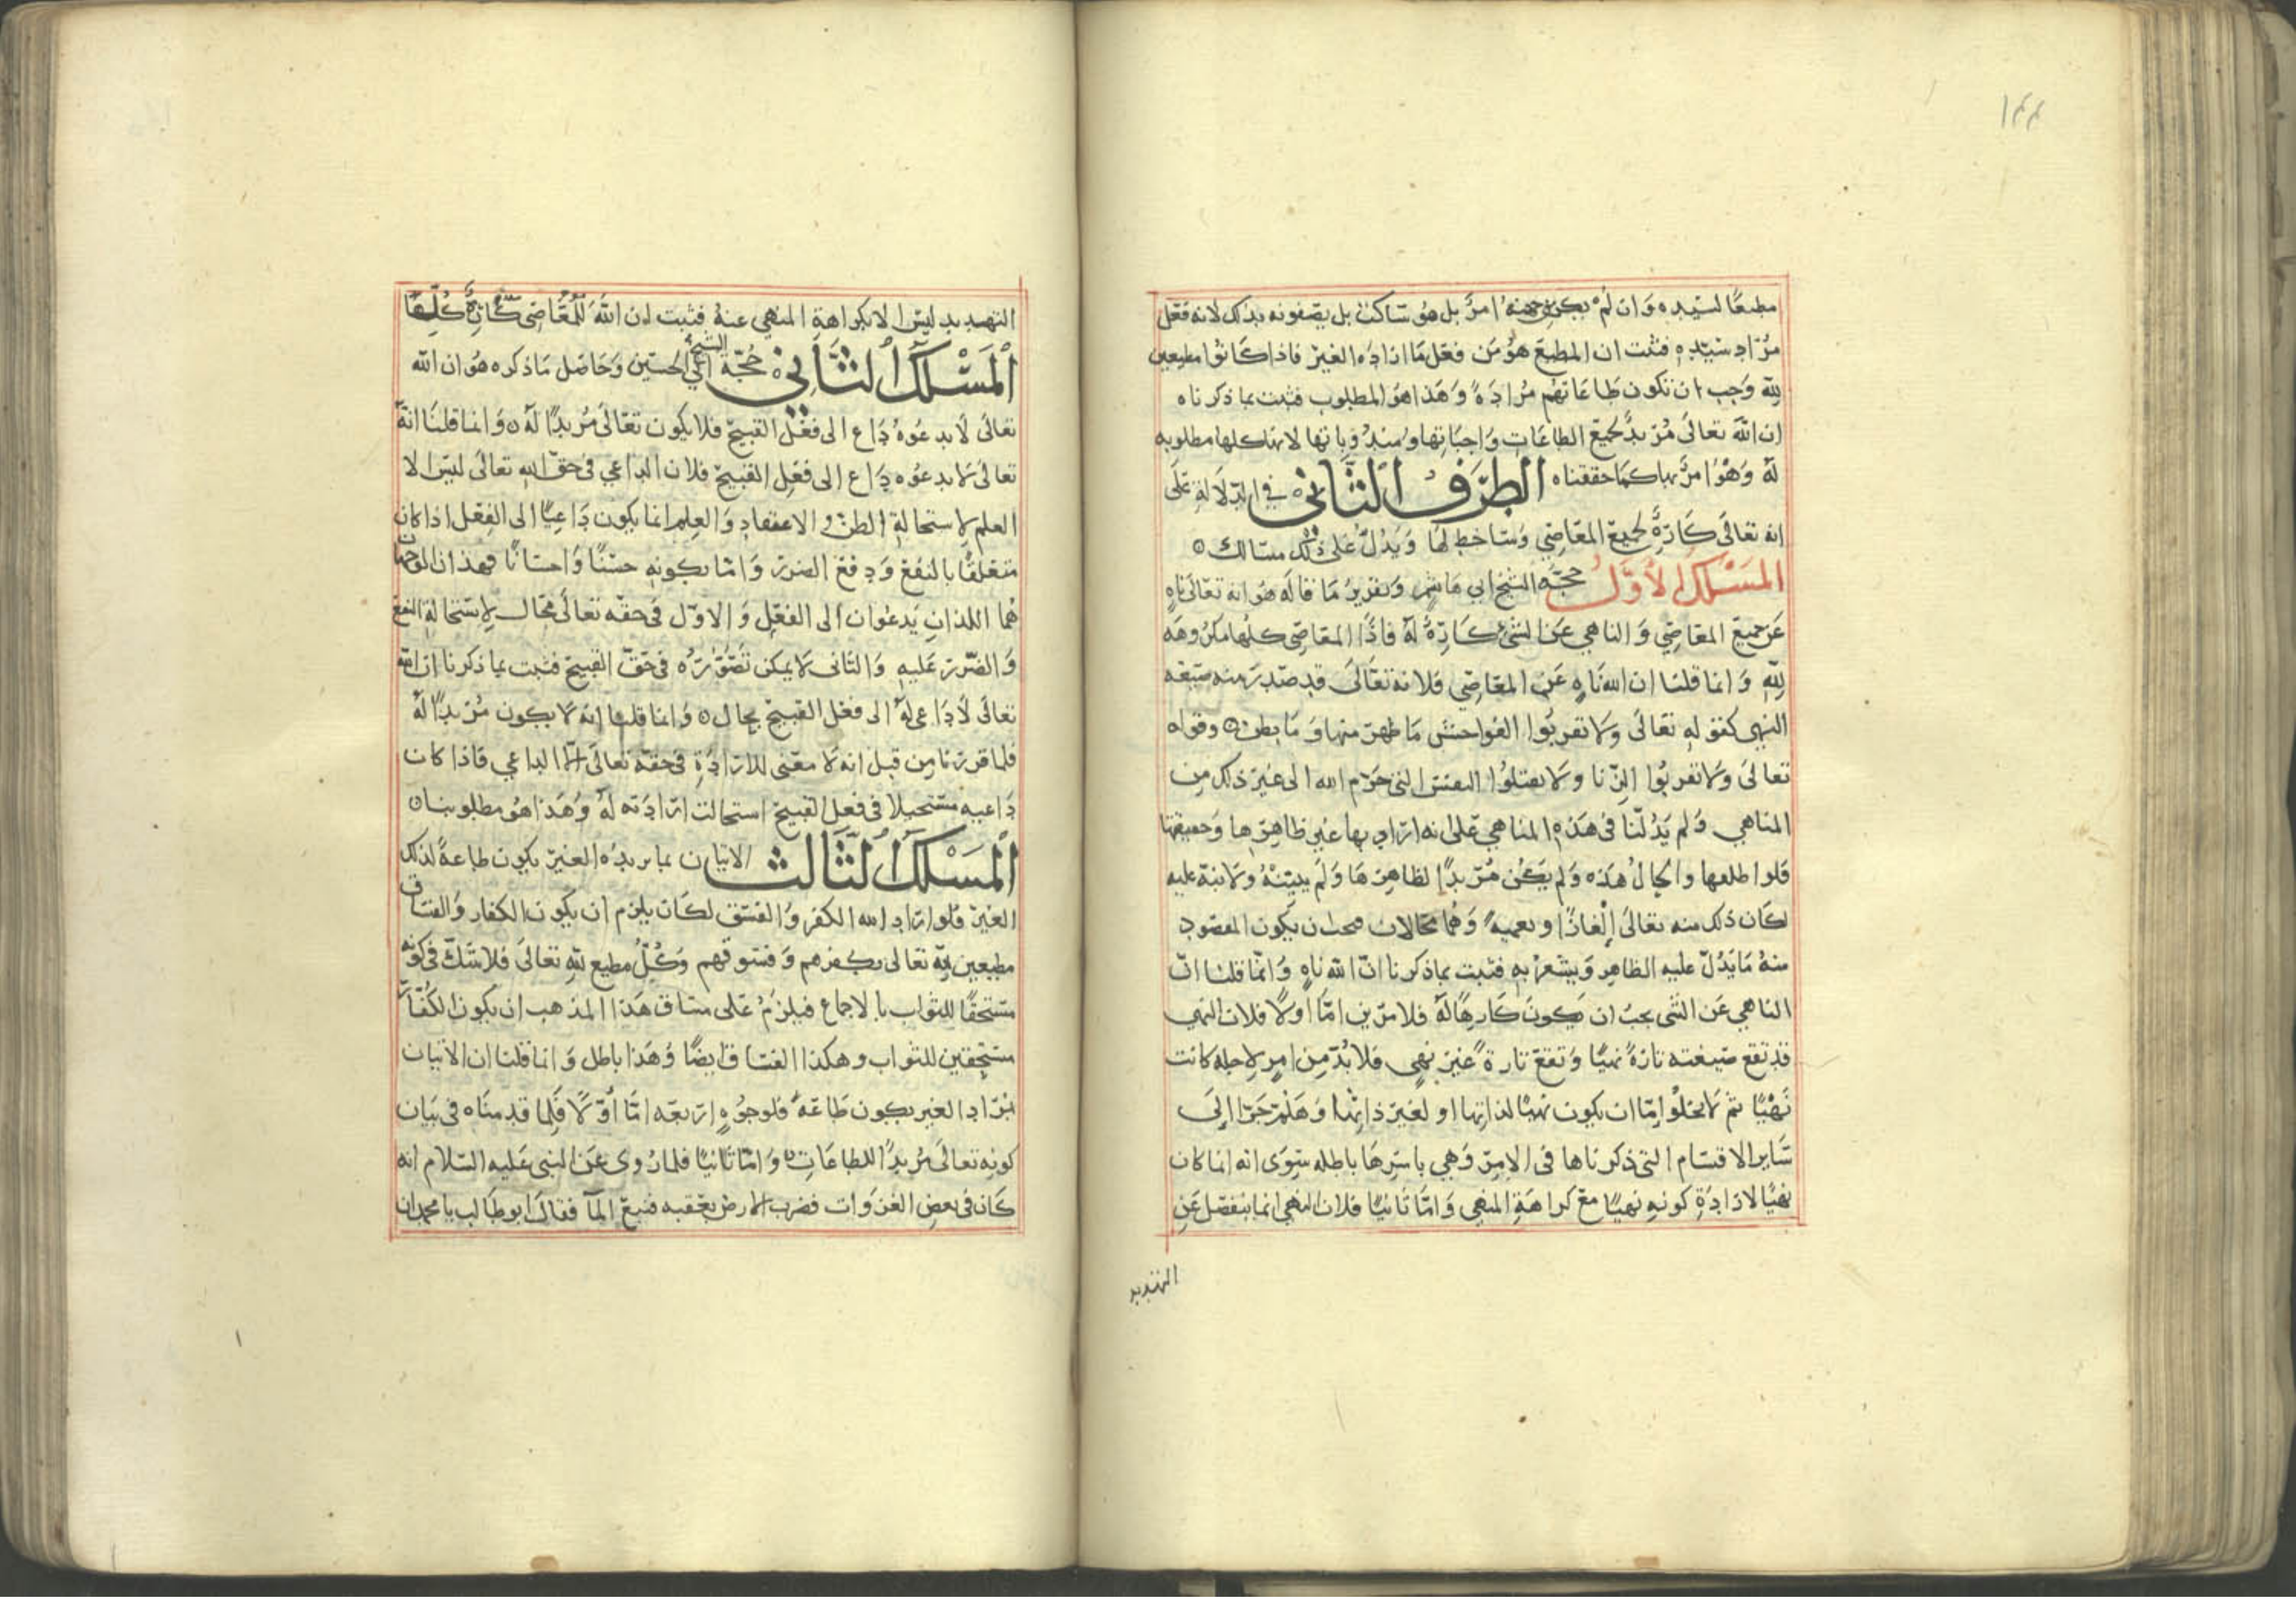 ١٤٤
مطيعًا لسيده وان لم يكن من جهته امر بل هو ساكت بل يصفونه بذلك لانه فعل
مراد سيده فثبت ان المطيع هو من فعل ما اراده الغير فاذا كانوا مطيعين
لله وجب ان تكون طاعاتهم مرادة وهذا هو المطلوب فثبت بما ذكرناه
ان الله تعالى مريد لجميع الطاعات واجباتها ومندوباتها لانها كلها مطلوبه
له وهو امر بها كما حققناه الطرف الثاني في الدلالة على
انه تعالى كاره لجميع المعاصي وساخط لها ويدل على ذلك مسالك
المسلك الاول حجة الشيخ ابي هاشم وتقرير ما قاله هو انه تعالى ناه
عن جميع المعاصي والناهي عن الشيء كاره له فاذا المعاصي كلها مكروهه
لله وانما قلنا ان الله ناه عن المعاصي فلانه تعالى قد صدر منه صيغه
النهي كقوله تعالى ولا تقربوا الفواحش ما ظهر منها وما بطن وقوله
تعالى ولا تقربوا الزنا ولا تقتلوا النفس التي حرم الله الى غير ذلك من
المناهي ولم يدلنا في هذه المناهي على انه اراد بها غير ظاهرها وحقيقتها
فلو اطلعها والحال هذه ولم يكن مريدًا لظاهرها ولم يبينه ولا نبه عليه
لكان ذلك منه تعالى إلغازًا وتعميه وهما محالان فيجب ان يكون المقصود
منه ما يدل عليه الظاهر ويشعر به فثبت بما ذكرنا ان الله ناه وانما قلنا ان
الناهي عن الشي يجب ان يكون كارهًا له فلامرين اما اولا فلان النهي
قد تقع صيغته تارة نهيًا وتقع تارة غير نهي فلا بد من امر لاجله كانت
نهيًا ثم لا يخلوا إما ان يكون نهيًا لذاتها او لغير ذاتها وهلم جرا إلى
ساير الاقسام التي ذكرناها في الامر وهي باسرها باطله سوى انه انما كان
نهيًا لارادة كونه نهيًا مع كراهة المنهي واما ثانيًا فلان النهي انما ينفصل عن
التهديد
التهديد ليس الا بكراهة المنهي عنه فثبت ان الله للمعاصي كاره كلها
المسلك الثاني حجة الشيخ ابي الحسين وحاصل ما ذكره هو ان الله
تعالى لا يدعوه داع الى فعل القبيح فلا يكون تعالى مريدًا له وانما قلنا انه
تعالى لا يدعوه داع الى فعل القبيح فلان الداعي في حق الله تعالى ليس الا
العلم لاستحالة الظن والاعتقاد والعلم انما يكون داعيًا الى الفعل اذا كان
متعلقًا بالنفع ودفع الضرر واما بكونه حسنًا واحسانًا فهذان الوجهان
هما اللذان يدعوان الى الفعل والاول في حقه تعالى محال لاستحالة النفع
والضرر عليه والثاني لا يمكن تصوره في حق القبيح فثبت بما ذكرنا ان الله
تعالى لا داعي له الى فعل القبيح بحال وانما قلنا انه لا يكون مريدًا له
فلما قررنا من قبل انه لا معنى للارادة في حقه تعالى الا الداعي فاذا كان
داعيه مستحيلا في فعل القبيح استحالت ارادته له وهذا هو مطلوبنا
المسلك الثالث الاتيان بما يريده الغير يكون طاعة لذلك
الغير فلو اراد الله الكفر والفسق لكان يلزم ان يكون الكفار والفساق
مطيعين لله تعالى بكفرهم وفسوقهم وكل مطيع لله تعالى فلا شك في كونه
مستحقًا للثواب بالاجماع فيلزم على مساق هذا المذهب ان يكون الكفار
مستحقين للثواب وهكذا الفساق ايضًا وهذا باطل وانما قلنا ان الاتيان
بمراد الغير يكون طاعة فلوجوه اربعه اما أولا فلما قدمناه في بيان
كونه تعالى مريدًا للطاعات واما ثانيًا فلما روي عن النبي عليه السلام انه
كان في بعض الغزوات فضرب الارض بعقبه فنبع الما فقال ابو طالب يا محمد ان